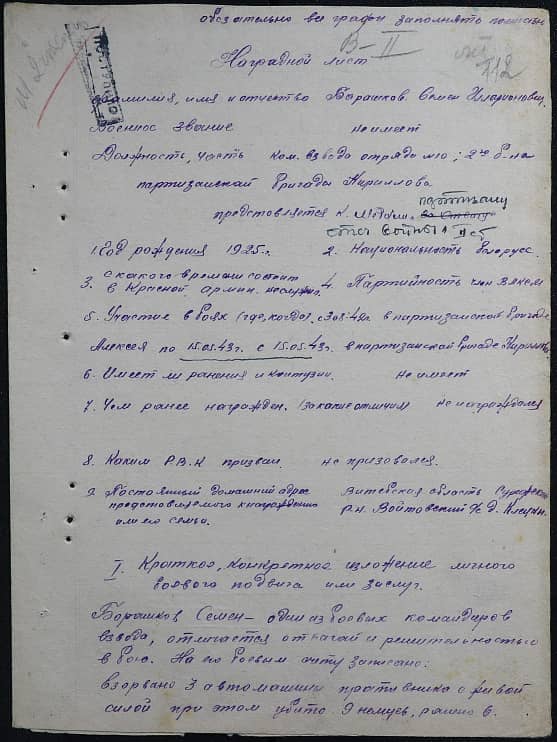 обязательно все графы заполнять полностью
В-II
112
Наградной лист
Фамилия, имя и отчество Барашков Семен Илларионович
Военное звание не имеет
Должность, часть ком. взвода отряда №10; 2го б-на
партизанской бригады Кириллова
партизану
представляется к медали
отеч войны 1 ст
1. Год рождения 1925 г. 2. Национальность белорусс.
3. с какого времени состоит
в Красной армии. не служил. 4. Партийность член ВЛКСМ
5. Участие в боях (где, когда). с 3.08.42г в партизанской бригаде
Алексея по 15.05.43 г. с 15.05.43 г. в партизанской бригаде Кириллова
6. Имеет ли ранения и контузии. не имеет
7. Чем ранее награжден. (за какие отличия) не награждался
8. Каким Р.В.К призван. не призовался.
9. Постоянный домашний адрес Витебская область Суражский
представляемого к награждению р-н. Войтовский с/с д.
или его семьи.
I. Краткое, конкретное изложение личного
боевого подвига или заслуг.
Борашков Семен - один из боевых командиров
взвода, отличается отвагай и решительностью
в бою. На его боевым счету записано:
взорвано 3 автомашин противника с живой
силой при этом убито 9 немцев, ранено 6.